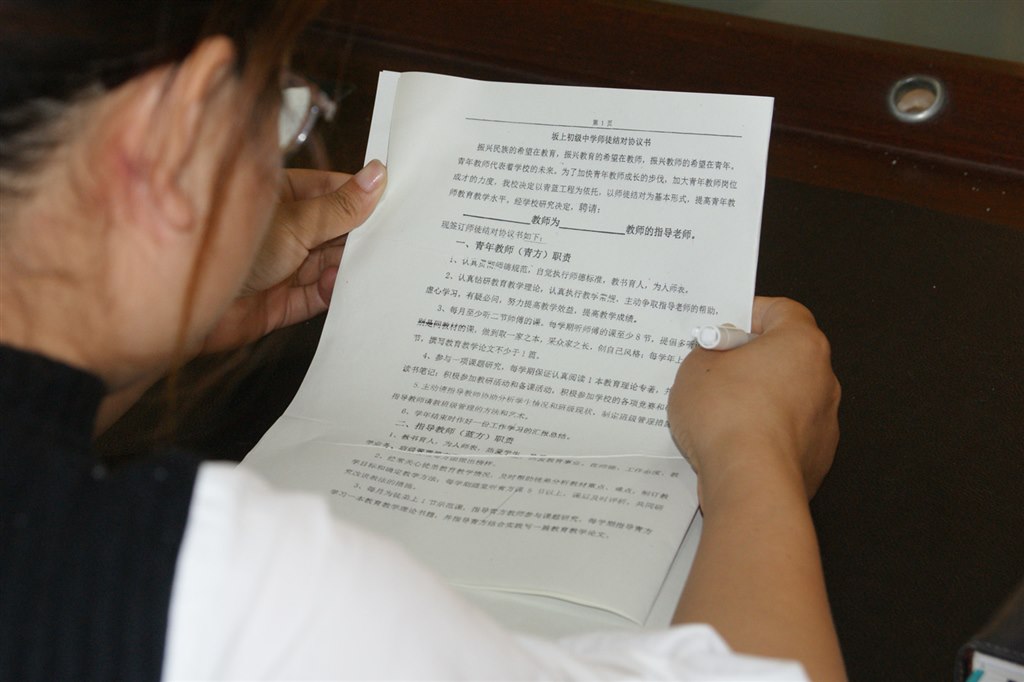 第 1 页
坂上初级中学师徒结对协议书
振兴民族的希望在教育，振兴教育的希望在教师，振兴教师的希望在青年。
青年教师代表着学校的未来。为了加快青年教师成长的步伐，加大青年教师岗位
成才的力度，我校决定以青蓝工程为依托，以师徒结对为基本形式，提高青年教
师教育教学水平。经学校研究决定，聘请：
教师为 教师的指导老师。
现签订师徒结对协议书如下：
一、青年教师（青方）职责
1、认真贯彻师德规范，自觉执行师德标准，教书育人，为人师表。
2、认真钻研教育教学理论，认真执行教学常规，主动争取指导老师的帮助，
虚心学习，有疑必问，努力提高教学效益，提高教学成绩。
3、每月至少听二节师傅的课。每学期听师傅的课至少 8 节，提倡多听
的课，做到取一家之本，采众家之长，创自己风格；每学年上
节，撰写教育教学论文不少于 1 篇。
4、参与一项课题研究，每学期保证认真阅读 1 本教育理论专著，并
读书笔记；积极参加教研活动和备课活动，积极参加学校的各项竞赛和
5、主动请指导教师协助分析学生情况和班级现状，制定班级管理措施
指导教师请教班级管理的方法和艺术。
6、学年结束时作好一份工作学习的汇报总结。
二、指导教师（蓝方）职责
1、教书育人，为人师表，热爱学生，
2、经常关心徒弟教育教学情况，及时帮助徒弟分析教材重点、难点，制订教
学目标和确定教学方法；每学期随堂听青方课 5 节以上，课后及时评析，共同研
究改进教法的措施。
3、每月为徒弟上 1 节示范课，指导青方教师参与课题研究，每学期指导青方
学习一本教育教学理论书籍，并指导青方结合实践写一篇教育教学论文。